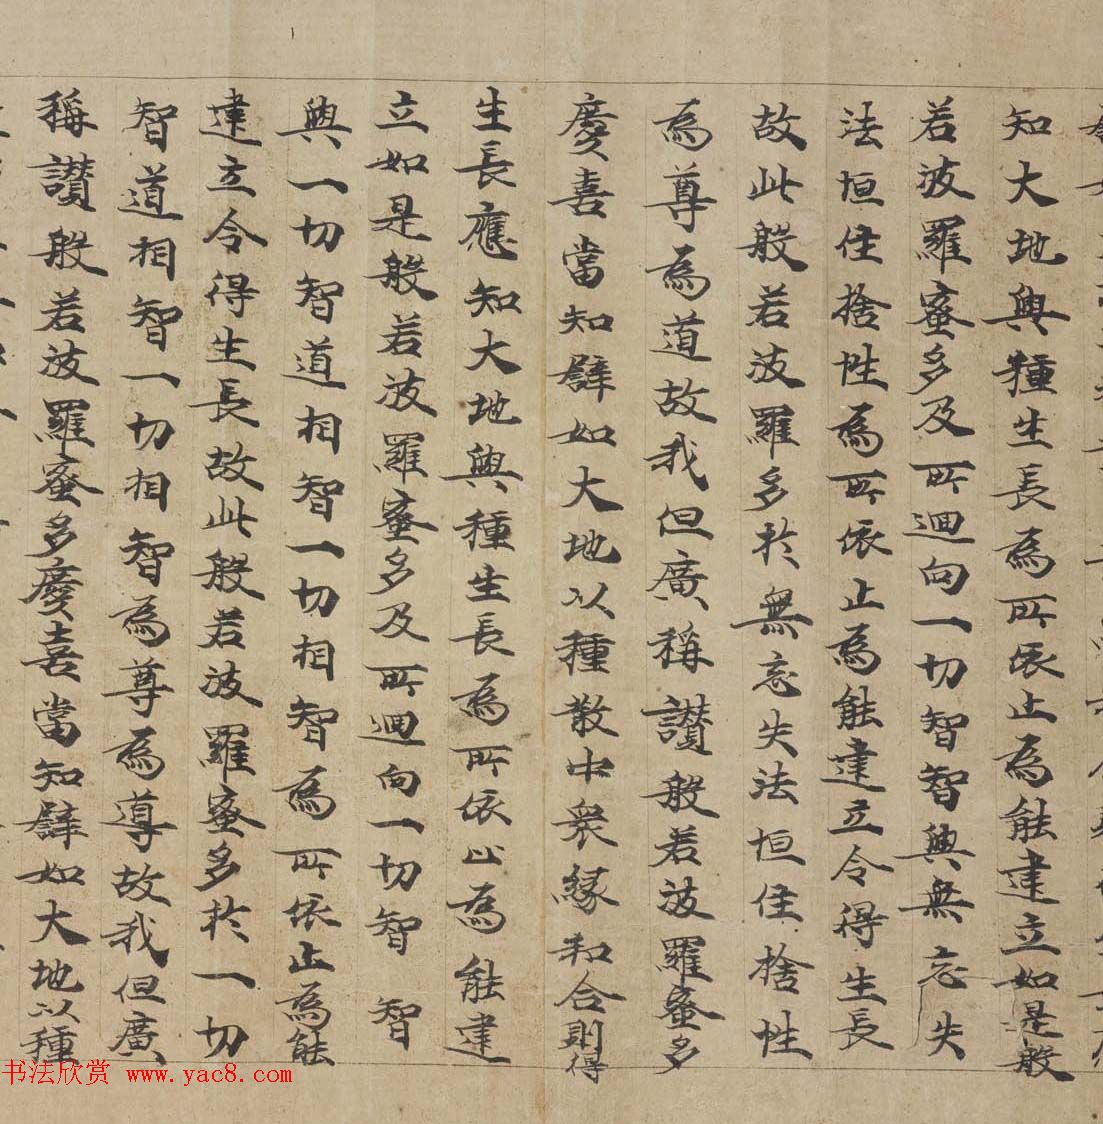 知大地與種生長為所依止為能建立如是般
若波羅蜜多及所迴向一切智智與無忘失
法恒住捨性為所依止為能建立令得生長
故此般若波羅多於無忘失法恒住捨性
為尊為道故我但廣稱讚般若波羅蜜多
慶喜當知譬如大地以種散中衆緣和合則得
生長應知大地與種生長為所依止為能建
立如是般若波羅蜜多及所迴向一切智智
與一切智道相智一切相智為所依止為能
建立令得生長故此般若波羅蜜多於一切
智道相智一切相智為尊為導故我但廣
稱讚般若波羅蜜多慶喜當知譬如大地以種
书法欣赏 www.yac8.com